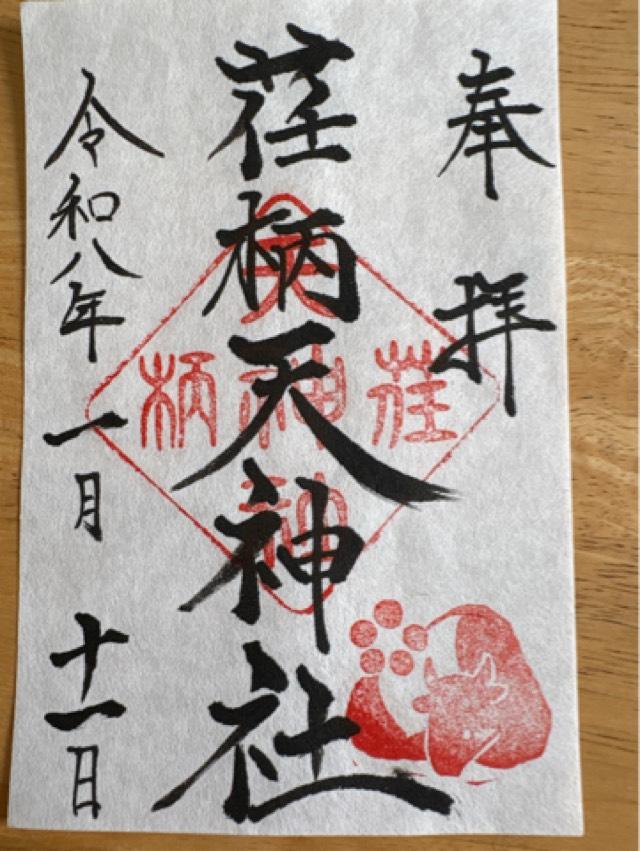 奉拝
荏柄天神社
令和八年一月十一日
荏
天神
柄